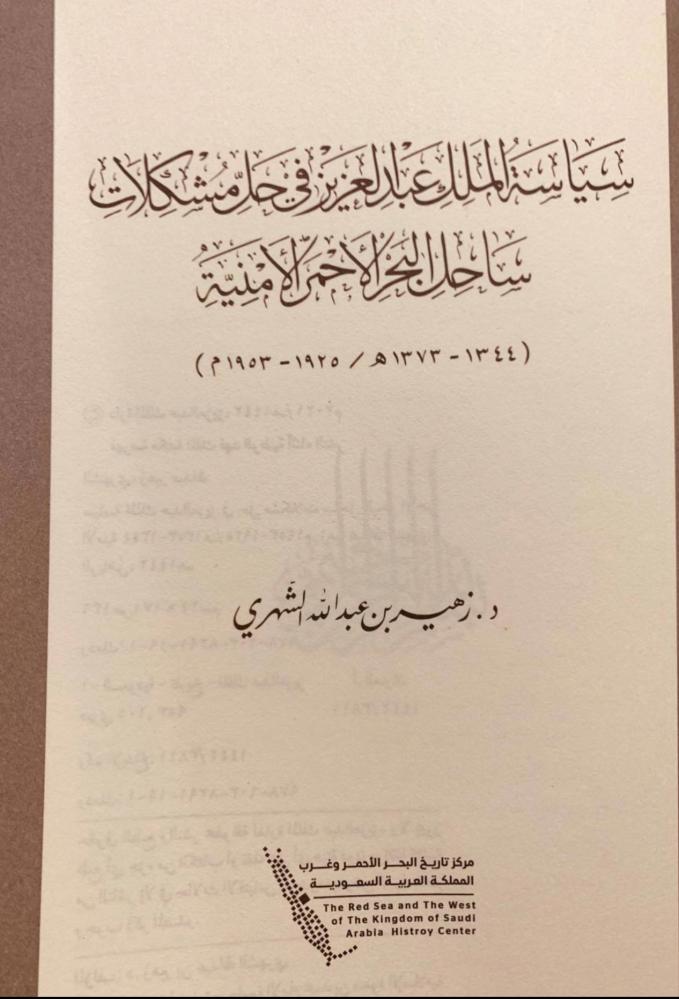 سياسة الملك عبدالعزيز في حل مشكلات
ساحل البحر الأحمر الأمنية
(١٣٤٤ - ١٣٧٣هـ / ١٩٢٥ - ١٩٥٣م)
د. زهير بن عبدالله الشهري
مركز تاريخ البحر الأحمر وغرب
المملكة العربية السعودية
The Red Sea and The West
of The Kingdom of Saudi
Arabia Histroy Center